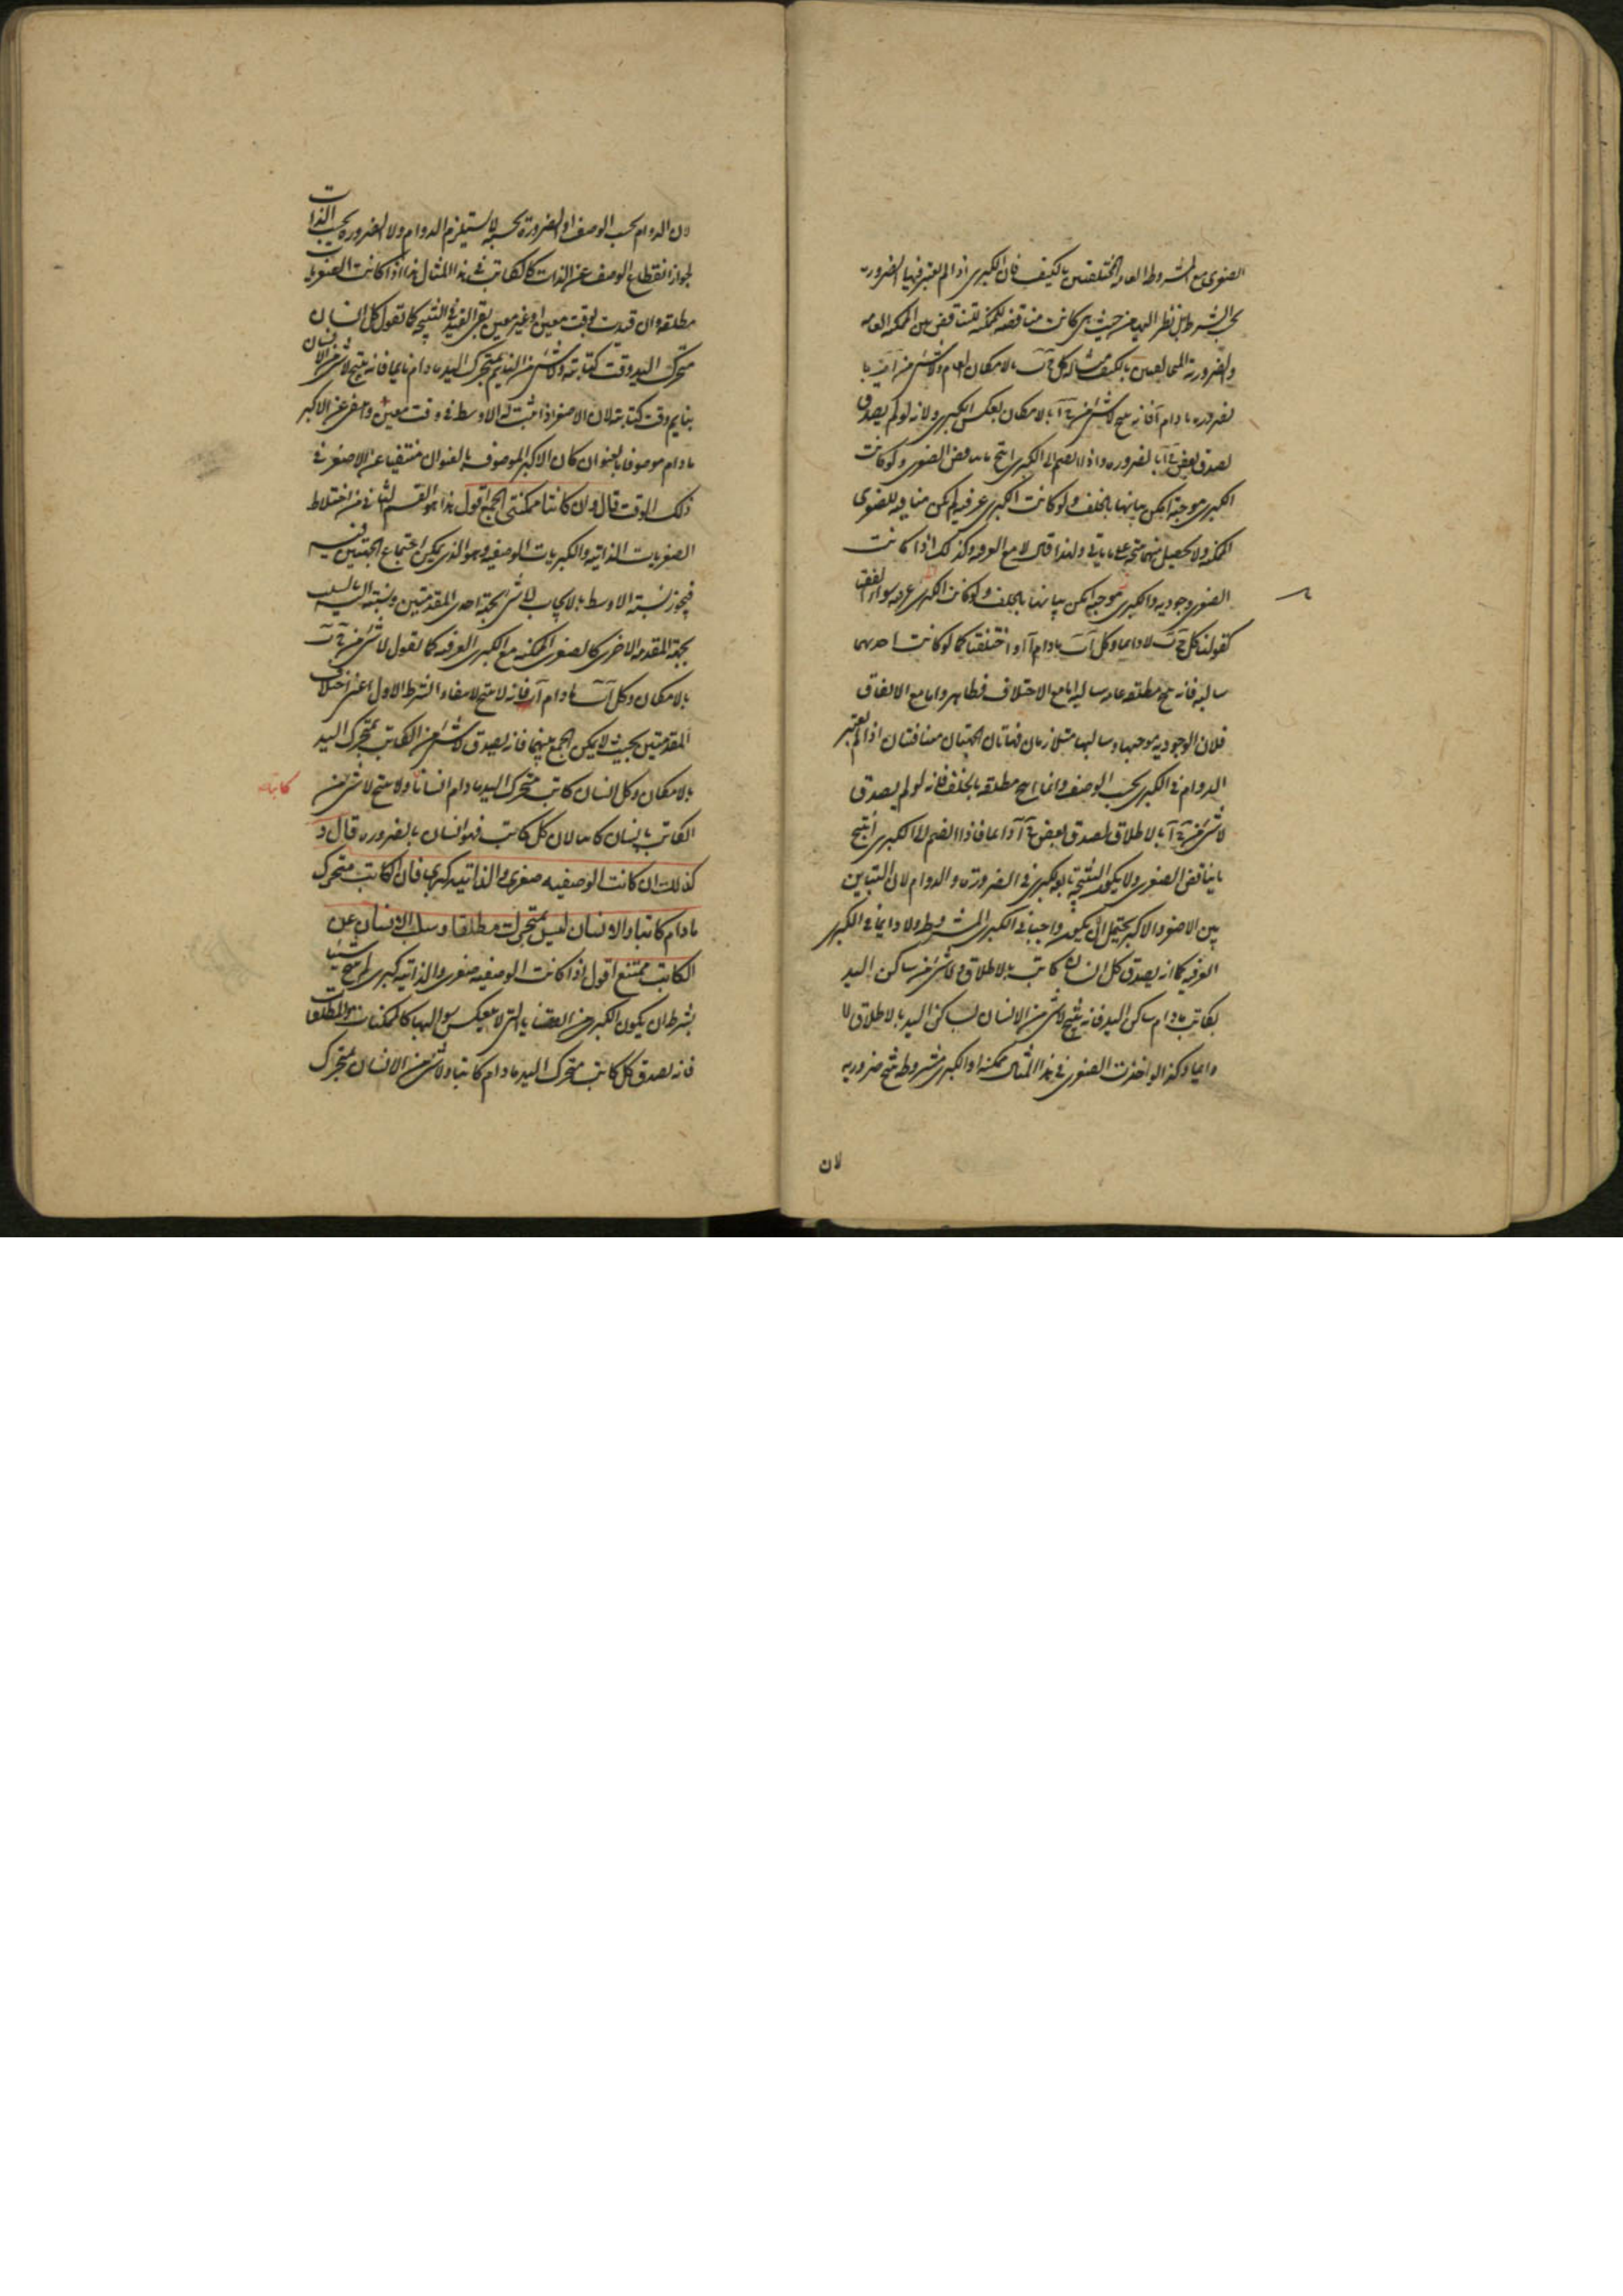 الصغرى مع المشروطة العامة المختلفتين بالكيف فان الكبرى اذا لم يعتبر فيها الضرورة
بحسب الشرط بل نظر اليها من حيث هي كانت مناقضة للممكنة للتناقض بين الممكنة العامه
والضرورية المتخالفتين بالكيف مثاله كل ج ب بالامكان العام ولا شئ من آ ب با
لضروره مادام آ فانه ينتج لا شئ من ج آ بالامكان بعكس الكبرى ولانه لو لم يصدق
لصدق بعض ج آ بالضروره واذا انضم الى الكبرى انتج ما يناقض الصغرى ولو كانت
الكبرى موجبة امكن بيانها بالخلف ولو كانت الكبرى عرفية لم يكن منافية للصغرى
الممكنه ولا يحصل منهما نتيجة على ما ياتى ولهذا قال لا مع العرفيه وكذلك اذا كانت
الصغرى وجوديه والكبرى موجبة يمكن بيانها بالخلف ولو كانت الكبرى عرفيه سواء اتفقتا
كقولنا كل ج ب لا دايما وكل آ ب مادام آ او اختلفتا كما لو كانت احديهما
سالبه فانه ينتج مطلقه عامه سالبه اما مع الاختلاف فظاهر واما مع الاتفاق
فلان الوجوديه موجبها وسالبها متلازمان فهاتان الجهتان متنافيتان اذا لم يعتبر
الدوام فى الكبرى بحسب الوصف وانما انتج مطلقه بالخلف فانه لو لم يصدق
لا شئ من ج آ بالاطلاق لصدق بعض ج آ دايما فاذا انضم الى الكبرى انتج
ما يناقض الصغرى ولا يكون النتيجة تابعة للكبرى فى الضرورة والدوام لان التباين
بين الاصغر والاكبر يحتمل ان يكون واجبا فى الكبرى المشروطة ولا دايما فى الكبرى
العرفيه كما انه يصدق كل انسان كاتب بالاطلاق ولا شئ من ساكن اليد
بكاتب مادام ساكن اليد فانه ينتج لا شئ من الانسان بساكن اليد بالاطلاق لا
دايما وكذا لو اخذت الصغرى فى هذا المثال ممكنه او الكبرى مشروطة ينتج ضروريه
لان
لان الدوام بحسب الوصف او الضرورة بحسبه لا يستلزم الدوام ولا الضرورة بحسب الذات
لجواز انقطاع الوصف عن الذات كالكاتب فى هذا المثال هذا اذا كانت الصغرى
مطلقه وان قيدت بوقت معين او غير معين بقى القيد فى النتيجه كما تقول كل انسان
متحرك اليد وقت كتابته ولا شئ من النايم بمتحرك اليد مادام نايما فانه ينتج لا شئ من الانسان
بنايم وقت كتابته لان الاصغر اذا ثبت له الاوسط فى وقت معين وانتفى عن الاكبر
مادام موصوفا بالعنوان كان الاكبر الموصوف بالعنوان منتفيا عن الاصغر فى
ذلك الوقت قال وان كانتا ممكنتى الجمع اقول هذا هو القسم الثانى من اختلاط
الصغريات الذاتيه والكبريات الوصفيه وهو الذى يمكن اجتماع الجهتين فيه
فيجوز نسبة الاوسط بالايجاب الى شئ بجهة احدى المقدمتين ونسبته اليه بالسلب
بجهة المقدمه الاخرى كالصغرى الممكنه مع الكبرى العرفيه كما نقول لا شئ من ج ب
بالامكان وكل آ ب مادام آ فانه لا ينتج لانتفاء الشرط الاول اعنى اختلاف
المقدمتين بحيث لا يمكن الجمع بينهما فانه يصدق لا شئ من الكاتب بمتحرك اليد
بالامكان وكل انسان كاتب متحرك اليد مادام انسانا ولا ينتج لا شئ من
كاتبا
الكاتب بانسان كاتبا لان كل كاتب فهو انسان بالضروره قال و
كذلك ان كانت الوصفيه صغرى والذاتيه كبرى فان الكاتب متحرك
مادام كاتبا والانسان ليس بمتحرك مطلقا وسلب الانسان عن
الكاتب ممتنع اقول اذا كانت الوصفيه صغرى والذاتيه كبرى لم ينتج شيئا
بشرط ان يكون الكبرى من القضايا التى لا ينعكس سوالبها كالممكنات والمطلقات
فانه يصدق كل كاتب متحرك اليد مادام كاتبا ولا شئ من الانسان بمتحرك